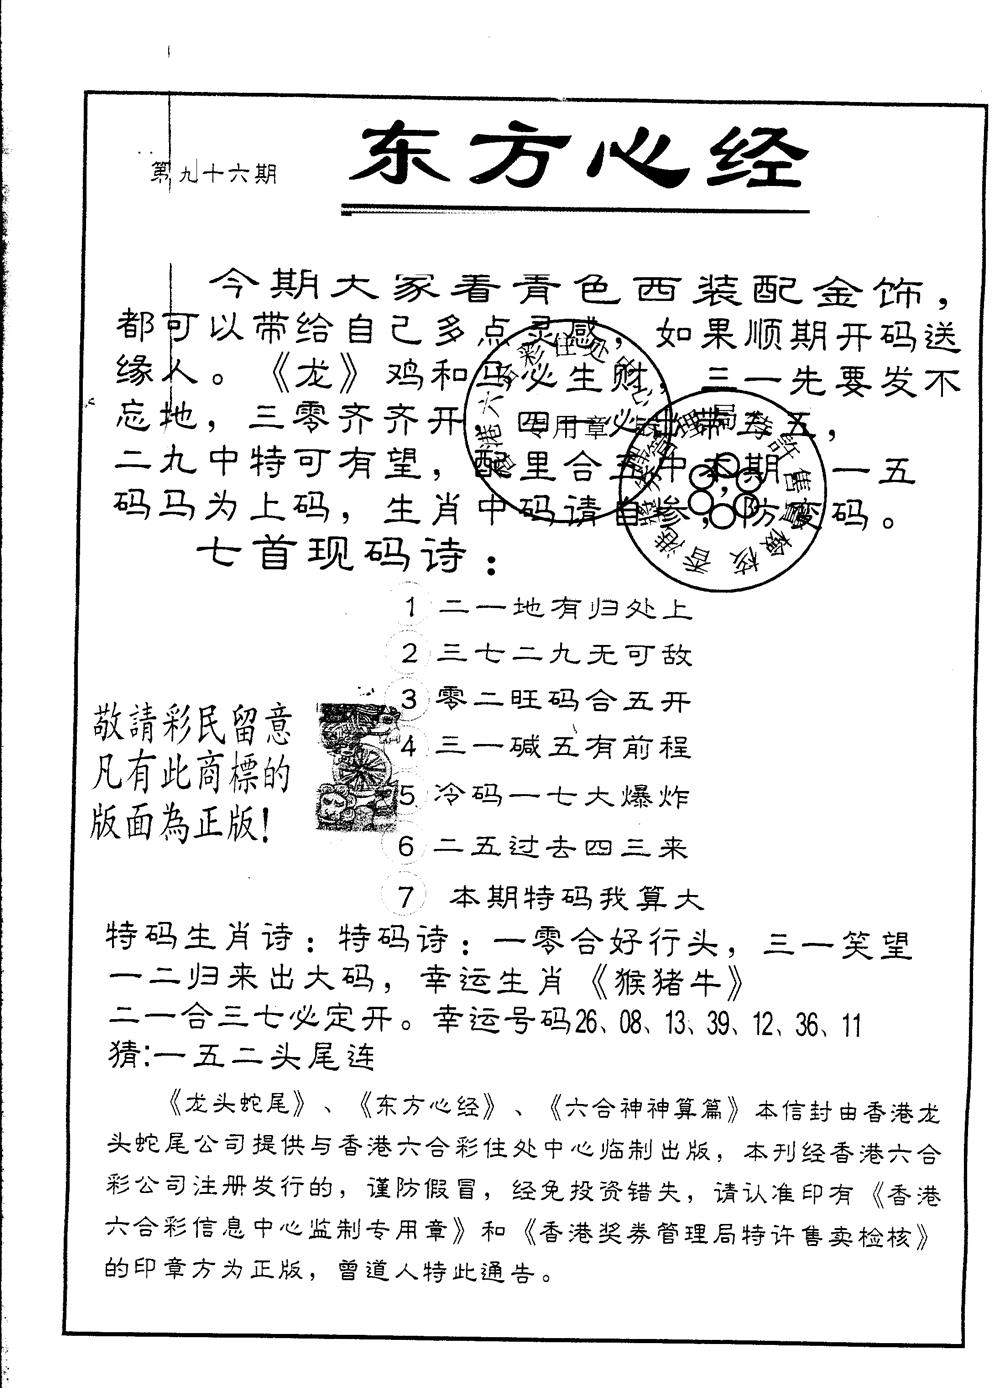 第九十六期
东方心经
今期大家看青色西装配金饰，
都可以带给自己多点灵感，如果顺期开码送
缘人。《龙》鸡和马必生财，三一先要发不
忘地，三零齐齐开，四一必出带三五，
二九中特可有望，配里合五中本期，一五
码马为上码，生肖中码请自参，防变码。
专用章
七首现码诗：
1 二一地有归处上
2 三七二九无可敌
3 零二旺码合五开
4 三一碱五有前程
5 冷码一七大爆炸
6 二五过去四三来
7 本期特码我算大
敬請彩民留意
凡有此商標的
版面為正版！
特码生肖诗：特码诗：一零合好行头，三一笑望
一二归来出大码，幸运生肖《猴猪牛》
二一合三七必定开。幸运号码26、08、13、39、12、36、11
猜:一五二头尾连
《龙头蛇尾》、《东方心经》、《六合神神算篇》本信封由香港龙
头蛇尾公司提供与香港六合彩住处中心临制出版，本刊经香港六合
彩公司注册发行的，谨防假冒，经免投资错失，请认准印有《香港
六合彩信息中心监制专用章》和《香港奖券管理局特许售卖检核》
的印章方为正版，曾道人特此通告。